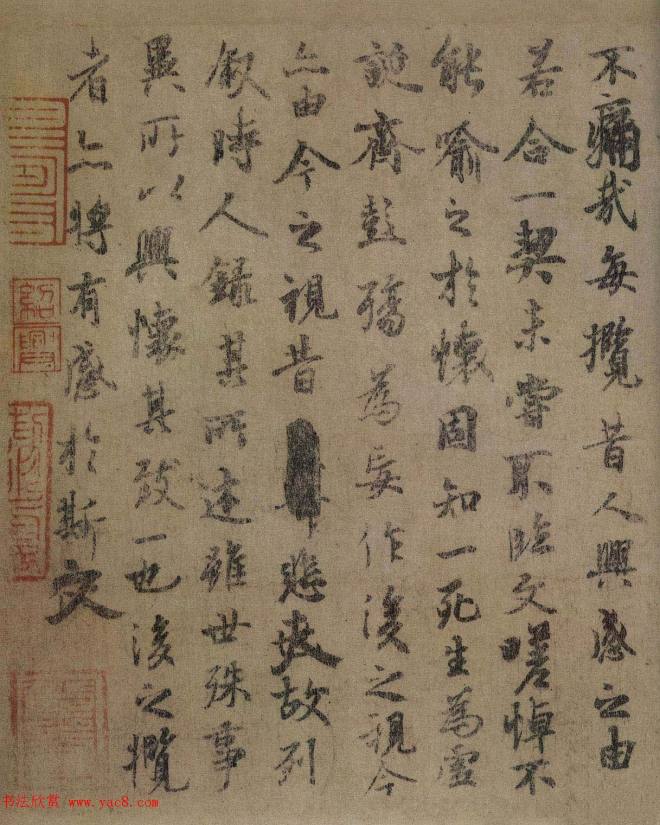 不痛哉每攬昔人興感之由
若合一契未嘗不臨文嗟悼不
能喻之於懷固知一死生為虛
誕齊彭殤為妄作後之視今
亦由今之視昔悲夫故列
敘時人錄其所述雖世殊事
異所以興懷其致一也後之攬
者亦將有感於斯文
紹興
书法欣赏 www.yac8.com